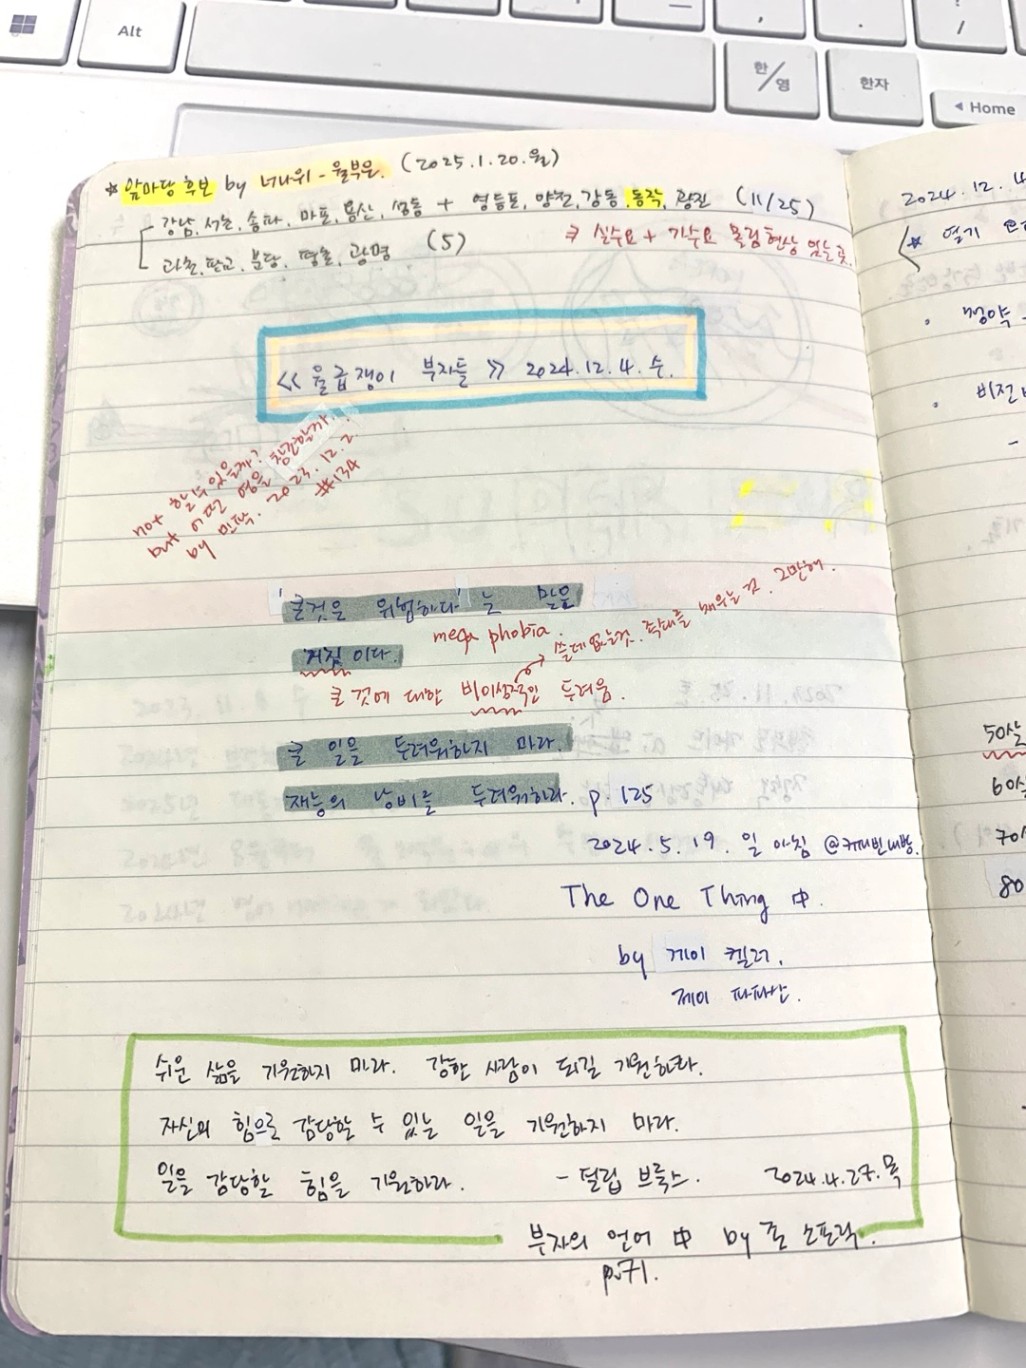 Alt
한/영
한자
◂ Home
☆ 앞마당 후보 by 너나위 - 월부은. (2025.1.20.월)
강남, 서초, 송파, 마포, 용산, 성동 + 영등포, 양천, 강동, 동작, 광진 (11/25)
과천, 판교, 분당, 평촌, 광명 (5)
⇒ 실수요 + 가수요 몰림 현상 있는 곳.
<< 월급쟁이 부자들 >> 2024.12.4. 수.
not 할 수 있을까?
but 어떤 영을
by 2023.12.2
#134
'큰것은 위험하다' 는 말은
거짓이다.
mega phobia.
큰 것에 대한 비이성적인 두려움.
쓸데없는것. 학대를 배우는 것. 그만해.
큰 일을 두려워하지 마라.
재능의 낭비를 두려워하라. p.125
2024.5.19. 일 아침 @캐빈
The One Thing 中.
by 게이 켈러.
제이 파파산.
쉬운 삶을 기원하지 마라. 강한 사람이 되길 기원하라.
자신의 힘으로 감당할 수 있는 일을 기원하지 마라.
일을 감당할 힘을 기원하라. - 필립 브룩스. 2024.4.27.목
부자의 언어 中 by 존 소포릭.
p.71.
2024.12.4
☆ 열기
청약
비전
50살
60살
70살
80